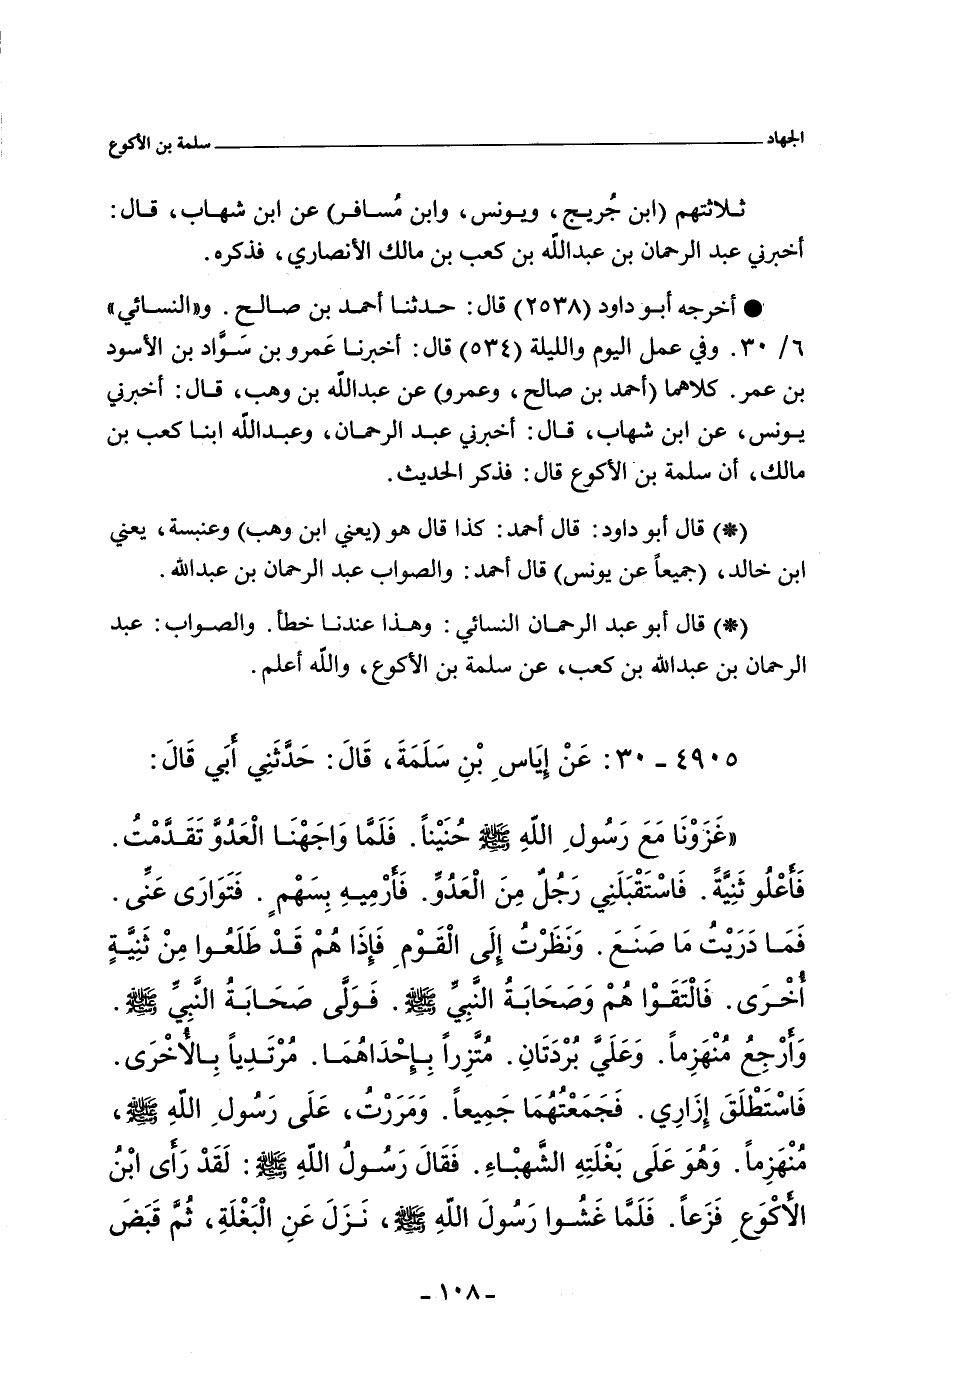 الجهاد ــــــــــــــــــــــــــــــــ سلمة بن الأكوع
ثلاثتهم (ابن جُريج، ويونس، وابن مُسافر) عن ابن شهاب، قال:
أخبرني عبد الرحمان بن عبدالله بن كعب بن مالك الأنصاري، فذكره.
● أخرجه أبو داود (٢٥٣٨) قال: حدثنا أحمد بن صالح. و«النسائي»
٦/ ٣٠. وفي عمل اليوم والليلة (٥٣٤) قال: أخبرنا عَمرو بن سَوَّاد بن الأسود
بن عمر. كلاهما (أحمد بن صالح، وعمرو) عن عبدالله بن وهب، قال: أخبرني
يونس، عن ابن شهاب، قال: أخبرني عبد الرحمان، وعبدالله ابنا كعب بن
مالك، أن سلمة بن الأكوع قال: فذكر الحديث.
(*) قال أبو داود: قال أحمد: كذا قال هو (يعني ابن وهب) وعنبسة، يعني
ابن خالد، (جميعاً عن يونس) قال أحمد: والصواب عبد الرحمان بن عبدالله.
(*) قال أبو عبد الرحمان النسائي: وهذا عندنا خطأ. والصواب: عبد
الرحمان بن عبدالله بن كعب، عن سلمة بن الأكوع، والله أعلم.
٤٩٠٥ - ٣٠: عَنْ إِيَاسِ بْنِ سَلَمَةَ، قَالَ: حَدَّثَنِي أَبِي قَالَ:
«غَزَوْنَا مَعَ رَسُولِ اللّهِ ﷺ حُنَيْناً. فَلَمَّا وَاجَهْنَا الْعَدُوَّ تَقَدَّمْتُ.
فَأَعْلُو ثَنِيَّةً. فَاسْتَقْبَلَنِي رَجُلٌ مِنَ الْعَدُوِّ. فَأَرْمِيهِ بِسَهْمٍ. فَتَوَارَى عَنِّى.
فَمَا دَرَيْتُ مَا صَنَعَ. وَنَظَرْتُ إِلَى الْقَوْمِ فَإِذَا هُمْ قَدْ طَلَعُوا مِنْ ثَنِيَّةٍ
أُخْرَى. فَالْتَقَوْا هُمْ وَصَحَابَةُ النَّبِيِّ ﷺ. فَوَلَّى صَحَابَةُ النَّبِيِّ ﷺ.
وَأَرْجِعُ مُنْهَزِماً. وَعَلَيَّ بُرْدَتَانِ. مُتَّزِراً بِإِحْدَاهُمَا. مُرْتَدِياً بِالأُخْرَى.
فَاسْتَطْلَقَ إِزَارِي. فَجَمَعْتُهُمَا جَمِيعاً. وَمَرَرْتُ، عَلَى رَسُولِ اللّهِ ﷺ،
مُنْهَزِماً. وَهُوَ عَلَى بَغْلَتِهِ الشَّهْبَاءِ. فَقَالَ رَسُولُ اللّهِ ﷺ: لَقَدْ رَأَى ابْنُ
الأَكْوَعِ فَزَعاً. فَلَمَّا غَشُوا رَسُولَ اللّهِ ﷺ، نَزَلَ عَنِ الْبَغْلَةِ، ثُمَّ قَبَضَ
- ١٠٨ -